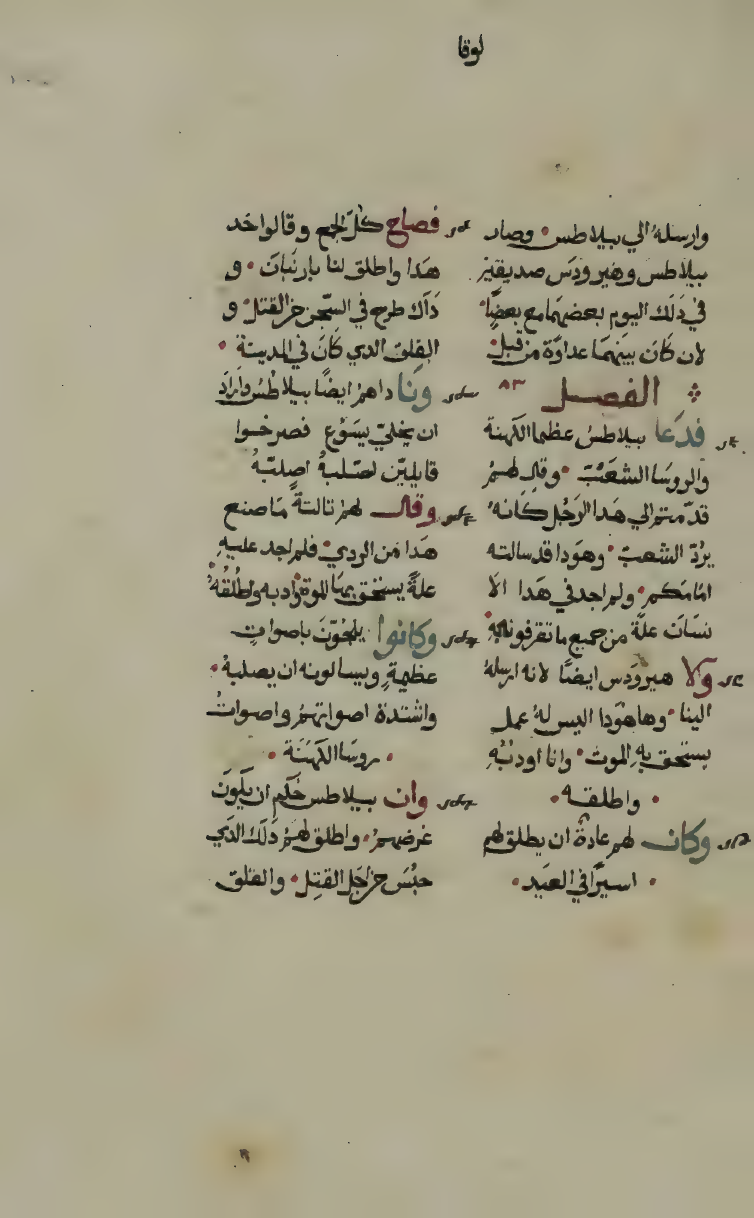 لوقا
وارسله الي بيلاطس • وصار
بيلاطس وهيرودس صديقين
في ذلك اليوم بعضهما مع بعضًا
لان كان بينهما عداوة من قبل
الفصل ٨٣
فدعا بيلاطس عظما الكهنة
والروسا الشعب • وقال لهم
قدمتم الي هدا الرجل كانه
يردّ الشعب • وهودا قد سالته
امامكم • ولم اجد في هدا الا
نسان علة من جميع ما تقرفونه به
ولا هيرودس ايضًا لانه ارسله
الينا • وها هودا اليس له عمل
يستحق به الموت • وانا اودبه
• واطلقه •
وكان لهم عادة ان يطلق لهم
• اسيرًا في العيد •
فصاح كل الجمع وقالوا خد
هدا واطلق لنا بارنبان • و
داك طرح في السجن من القتل • و
القلق الدي كان في المدينة •
ونا داهم ايضًا بيلاطس واراد
ان يخلي يسوع فصرخوا
قايلين اصلبه اصلبه
وقال لهم تالتة ما صنع
هدا من الردي • فلم اجد عليه
علة يستحق بها الموت • اودبه واطلقه
وكانوا يلحون باصوات
عظيمة ويسالونه ان يصلبه •
واشتدة اصواتهم واصوات
• روسا الكهنة •
وان بيلاطس حكم ان يكون
غرضهم • واطلق لهم دلك الدي
حبس من اجل القتل • والقلق